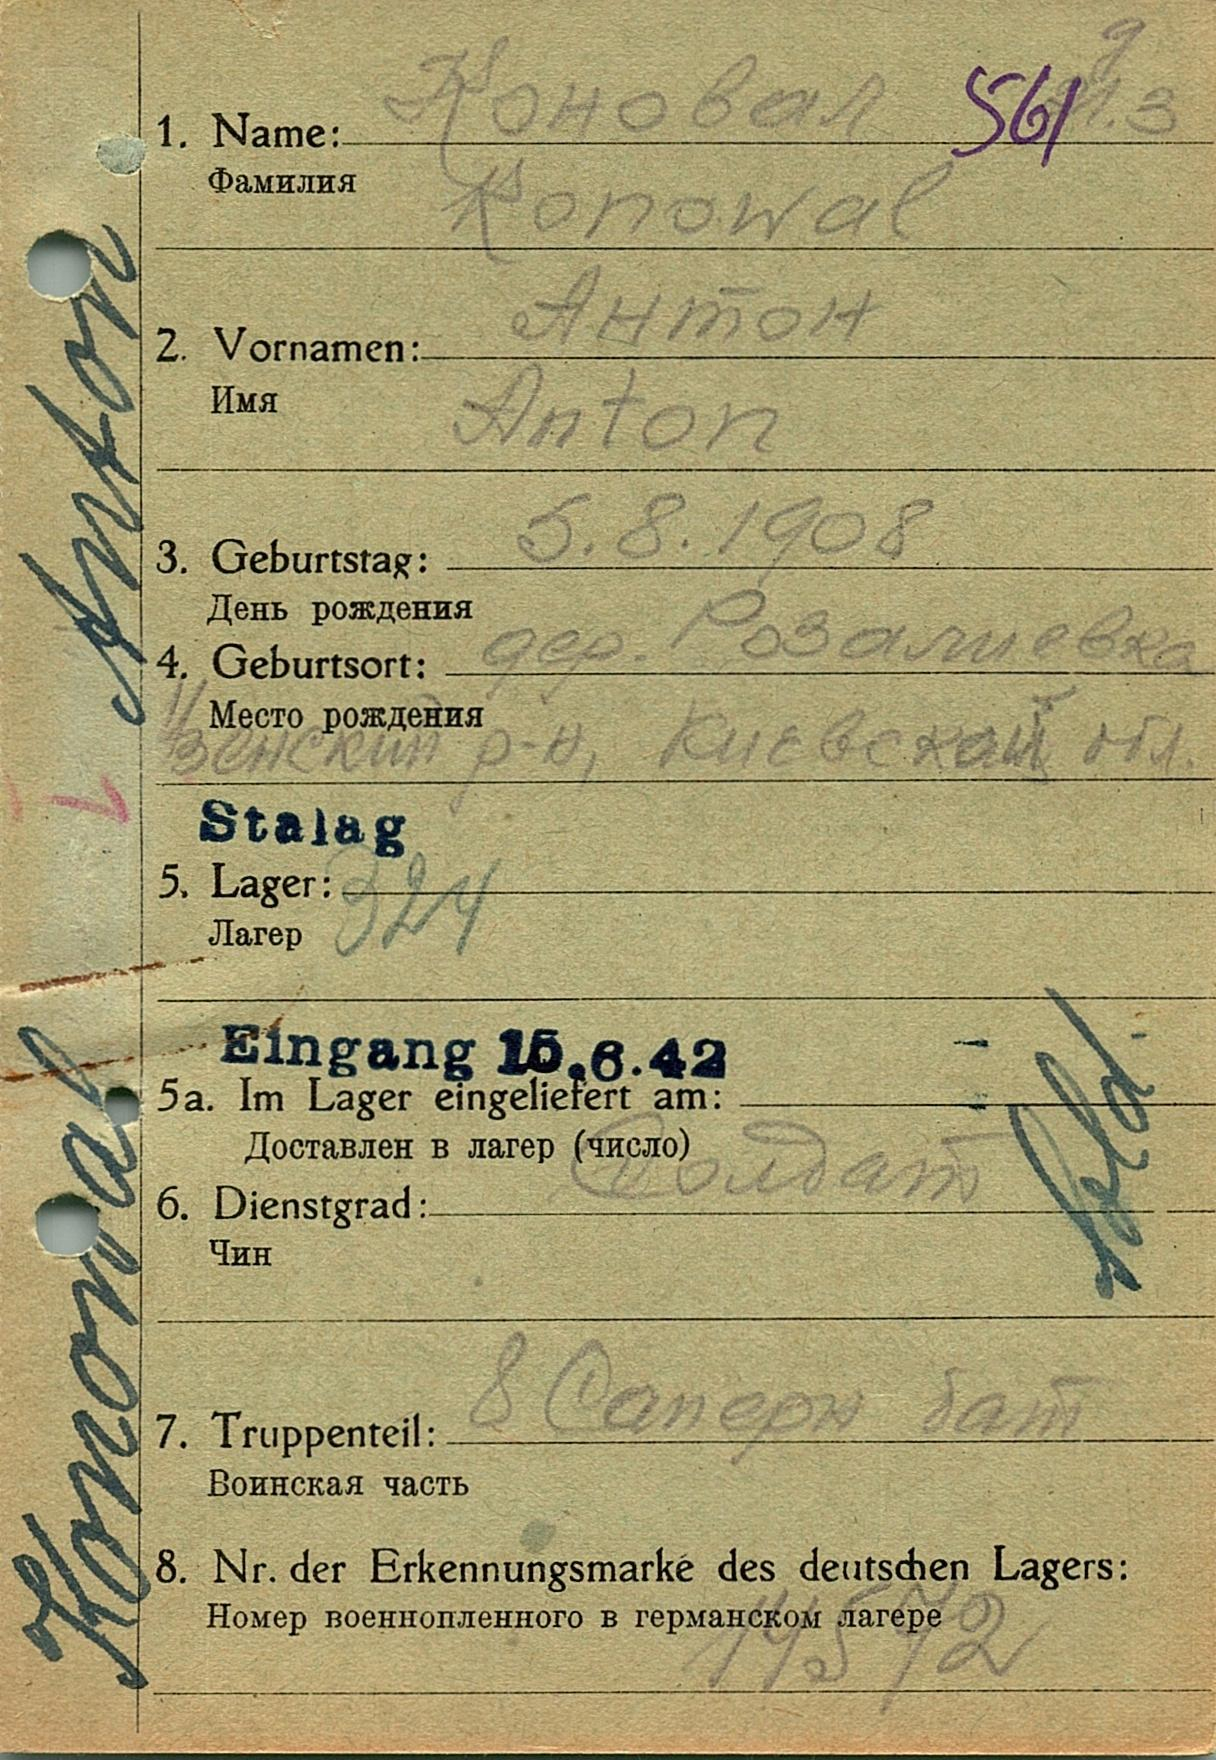 9
Коновал 561 И.З
1. Name:
Фамилия
Konowal
Антон
2. Vornamen:
Имя
Anton
5.8.1908
3. Geburtstag:
День рождения
4. Geburtsort: дер. Розалиевка
Место рождения
Узенский р-н, Киевской обл.
Stalag
5. Lager: 324
Лагер
Eingang 15.6.42
5a. Im Lager eingeliefert am:
Доставлен в лагер (число)
Солдат
6. Dienstgrad:
Чин
Sold.
8 Саперн бат
7. Truppenteil:
Воинская часть
8. Nr. der Erkennungsmarke des deutschen Lagers:
Номер военнопленного в германском лагере
14572
Konowal Anton